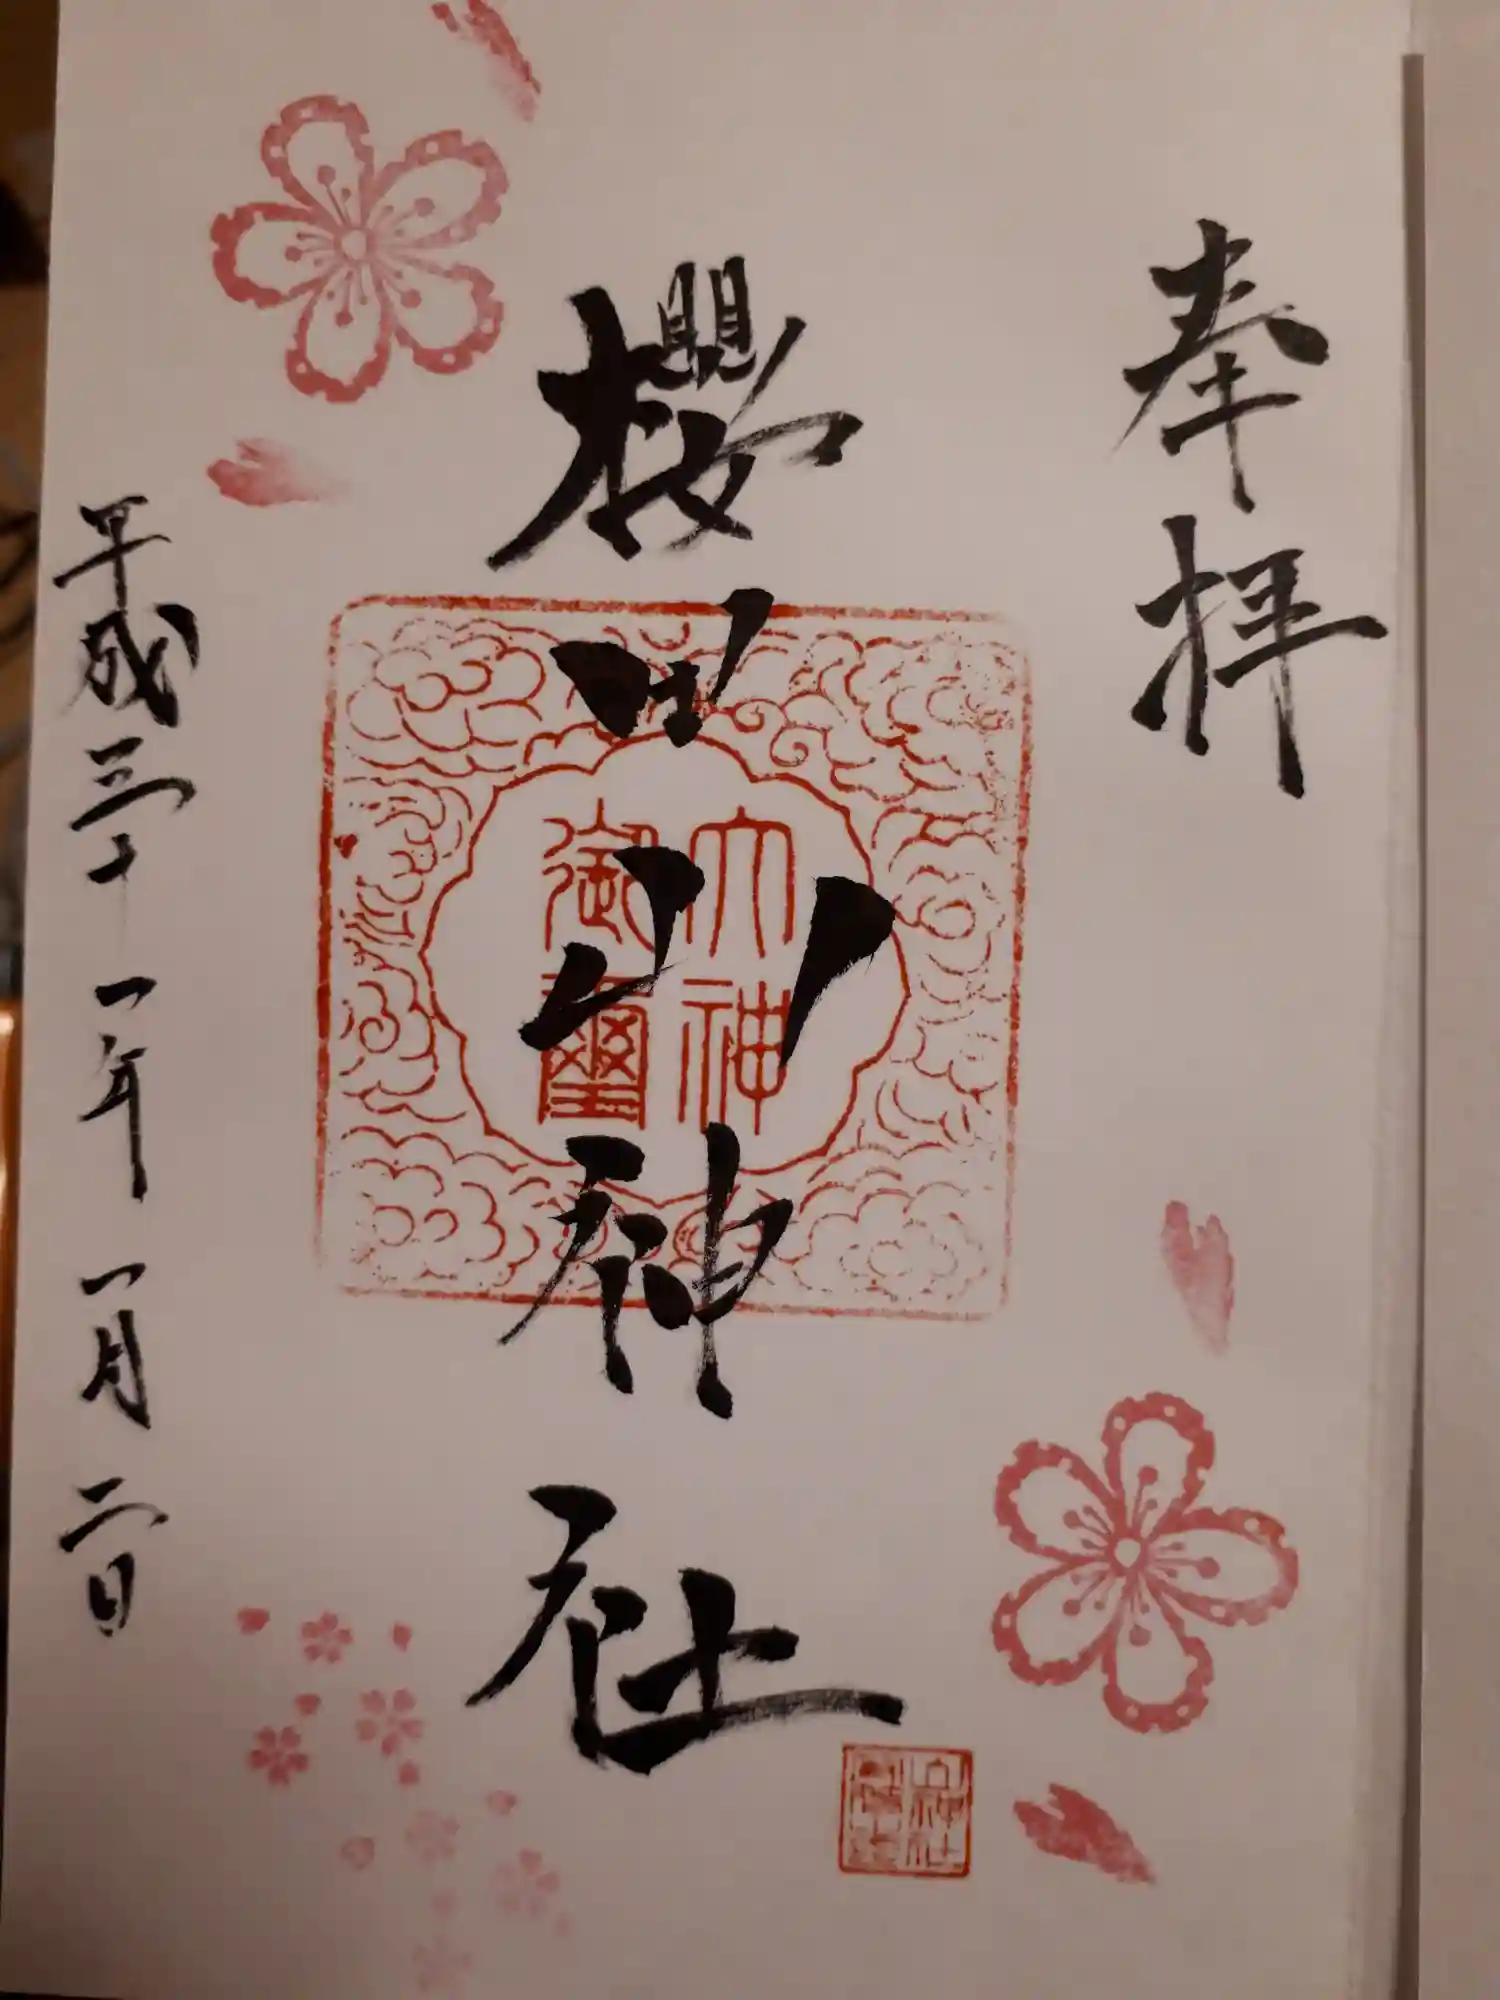 奉拝
櫻田山神社
大神
御璽
平成三十一年一月二日